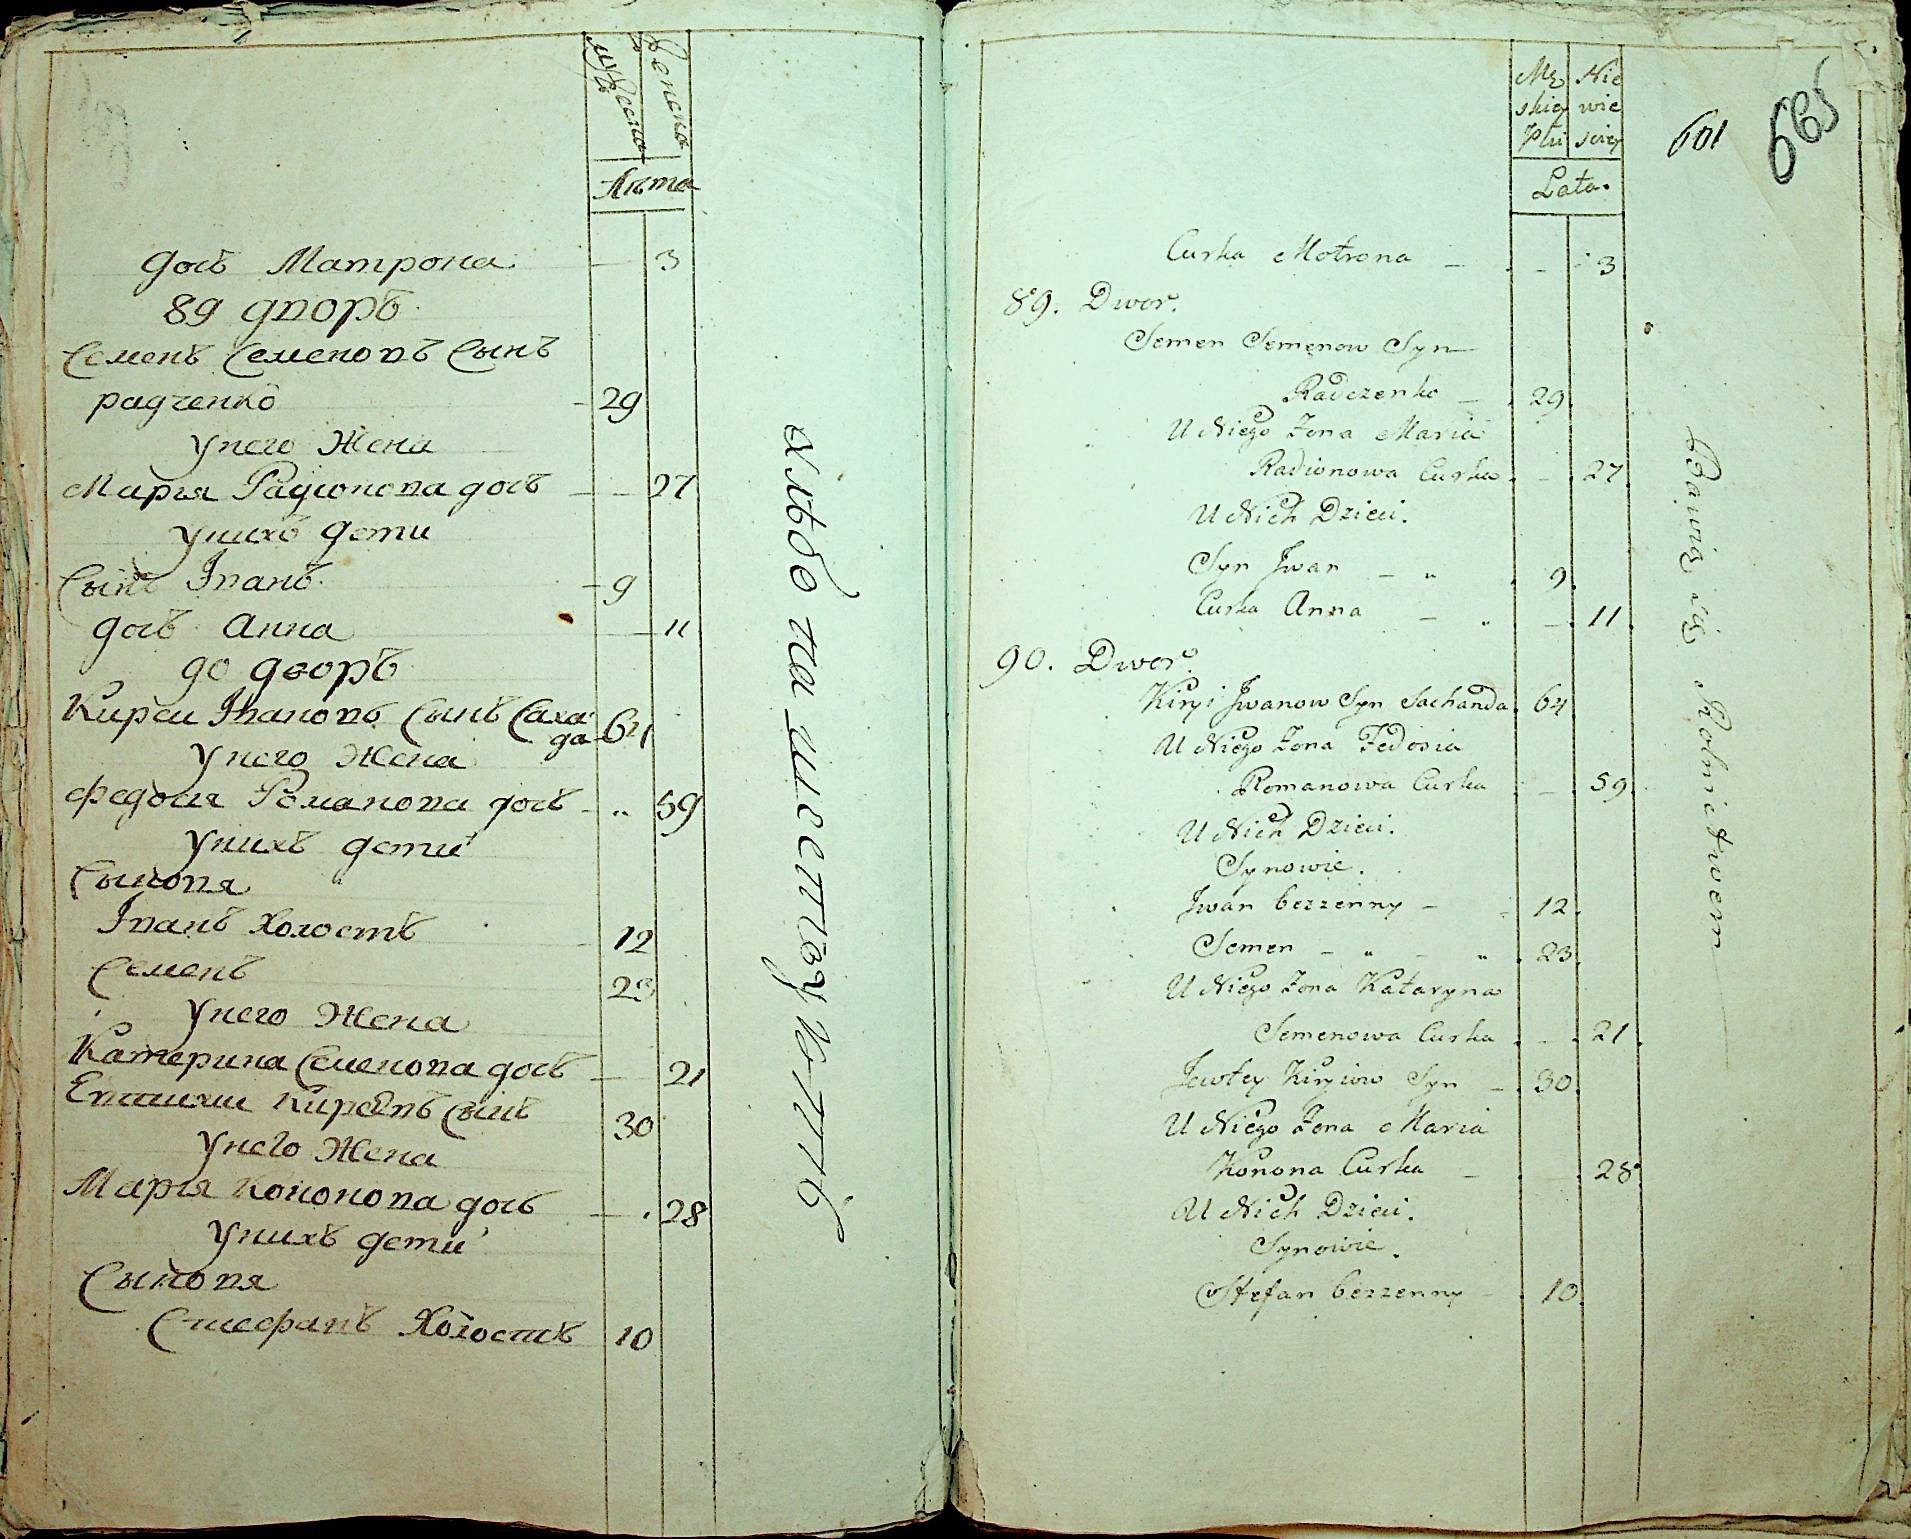 мужеска
женска
Лѣта
дочь Матрона — 3
89 дворъ
Семенъ Семеновъ сынъ
радченко — 29
унего жена
Марья Радионова дочь — — 27
унихъ дети
Сынъ Іванъ — 9
дочь Анна — 11
90 дворъ
Киреи Івановъ сынъ Саха
да 64
унего жена
Федосия Романова дочь — „ 59
унихъ дети
Сыновя
Іванъ холостъ 12
Семенъ 23
унего жена
Катерина Семенова дочь — 21
Евтихии Киреевъ сынъ 30
унего жена
Марья Кононова дочь — 28
унихъ дети
Сыновя
Стефанъ холостъ 10
Mę Nie
skiey wie
Płci sciey
Lata.
601
665
Curka Motrona — — 3
89. Dwor.
Semen Semenow Syn
Radczenko — 29.
U Niego Zona Maria
Radionowa Curka. — 27.
U Nich Dzieci.
Syn Jwan — „ 9.
Curka Anna — „ — 11.
90. Dwor.
Kiryi Jwanow Syn Sachanda. 64
U Niego Zona Fedosia
Romanowa Curka — 59.
U Nich Dzieci.
Synowie.
Jwan bezzenny — 12.
Semen — „ — „ 23.
U Niego Zona Kataryna
Semenowa Curka — 21.
Jewtey Kiryiow Syn — 30.
U Niego Zona Maria
Konona Curka — 28.
U Nich Dzieci.
Synowie.
Stefan bezzenny — 10.
Bawią się Rolnictwem